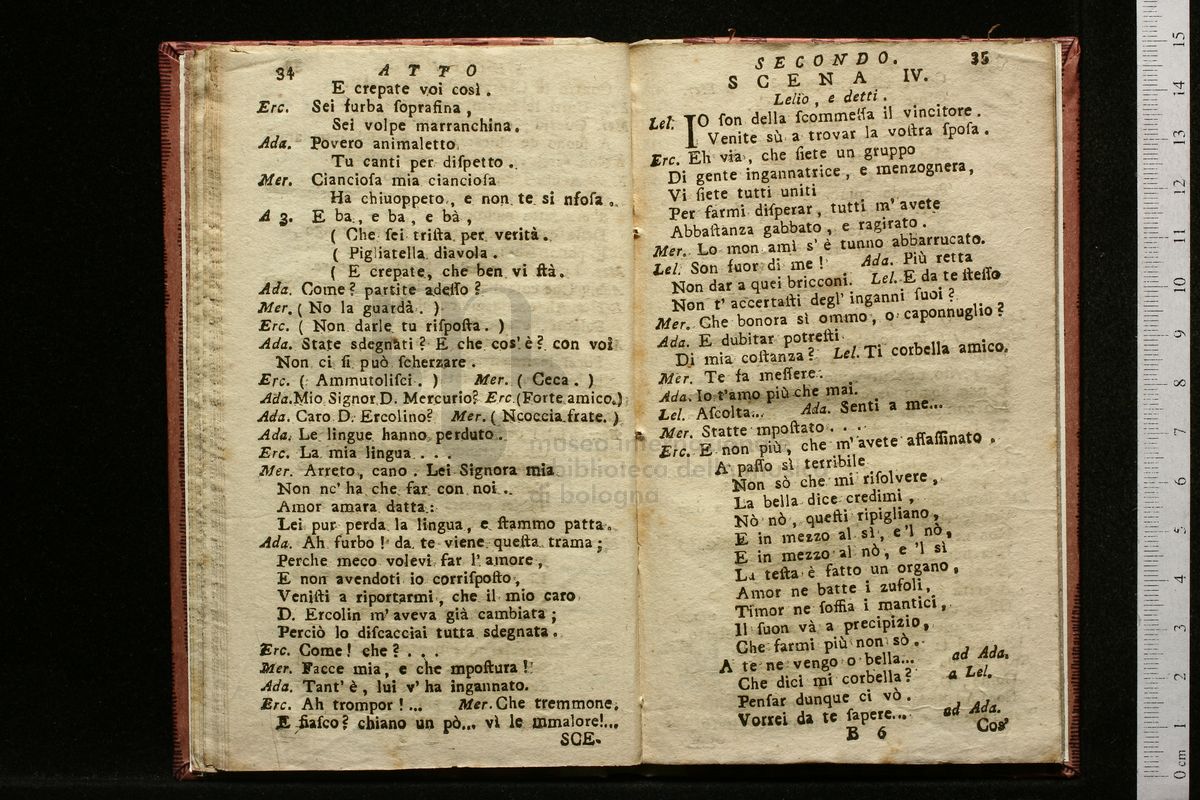 34 ATTO
E crepate voi così.
Erc. Sei furba ſoprafina,
Sei volpe marranchina.
Ada. Povero animaletto
Tu canti per diſpetto.
Mer. Cianciofa mia cianciofa
Ha chiuoppeto, e non te si nfofa.
A 3. E ba, e ba, e bà,
( Che ſei triſta per verità.
( Pigliatella diavola.
( E crepate, che ben vi ſtà.
Ada. Come? partite adeſſo?
Mer. ( No la guardà. )
Erc. ( Non darle tu riſpoſta. )
Ada. State sdegnati? E che cos'è? con voi
Non ci ſi può ſcherzare.
Erc. ( Ammutoliſci. ) Mer. ( Ceca. )
Ada. Mio Signor D. Mercurio? Erc. (Forte amico.)
Ada. Caro D. Ercolino? Mer. ( Ncoccia frate. )
Ada. Le lingue hanno perduto.
Erc. La mia lingua . . .
Mer. Arreto, cano. Lei Signora mia
Non nc' ha che far con noi..
Amor amara datta:
Lei pur perda la lingua, e ſtammo patta.
Ada. Ah furbo! da te viene queſta trama;
Perche meco volevi far l'amore,
E non avendoti io corriſpoſto,
Veniſti a riportarmi, che il mio caro
D. Ercolin m'aveva già cambiata;
Perciò lo diſcacciai tutta sdegnata.
Erc. Come! che? . . .
Mer. Facce mia, e che mpoſtura!
Ada. Tant' è, lui v' ha ingannato.
Erc. Ah trompor!... Mer. Che tremmone.
E fiaſco? chiano un pò... vì le mmalore!...
SCE-
SECONDO. 35
SCENA IV.
Lelio, e detti.
Lel. IO ſon della ſcommeſſa il vincitore.
Venite sù a trovar la voſtra ſpoſa.
Erc. Eh via, che ſiete un gruppo
Di gente ingannatrice, e menzognera,
Vi ſiete tutti uniti
Per farmi diſperar, tutti m' avete
Abbaſtanza gabbato, e ragirato.
Mer. Lo mon ami s' è tunno abbarrucato.
Lel. Son fuor di me! Ada. Più retta
Non dar a quei bricconi. Lel. E da te ſteſſo
Non t' accertaſti degl' inganni ſuoi?
Mer. Che bonora sì ommo, o caponnuglio?
Ada. E dubitar potreſti
Di mia coſtanza? Lel. Ti corbella amico.
Mer. Te fa meſſere.
Ada. Io t'amo più che mai.
Lel. Aſcolta... Ada. Senti a me...
Mer. Statte mpoſtato . . .
Erc. E non più, che m' avete aſſaſſinato.
A paſſo sì terribile
Non sò che mi riſolvere,
La bella dice credimi,
Nò nò, queſti ripigliano,
E in mezzo al sì, e 'l nò,
E in mezzo al nò, e 'l sì
La teſta è fatto un organo,
Amor ne batte i zufoli,
Timor ne ſoffia i mantici,
Il ſuon và a precipizio,
Che farmi più non sò.
A te ne vengo o bella... ad Ada.
Che dici mi corbella? a Lel.
Penſar dunque ci vò.
Vorrei da te ſapere... ad Ada.
B 6 Cos'
museo internazionale
biblioteca della musica
di bologna
15
14
13
12
11
10
9
8
7
6
5
4
3
2
1
0 cm